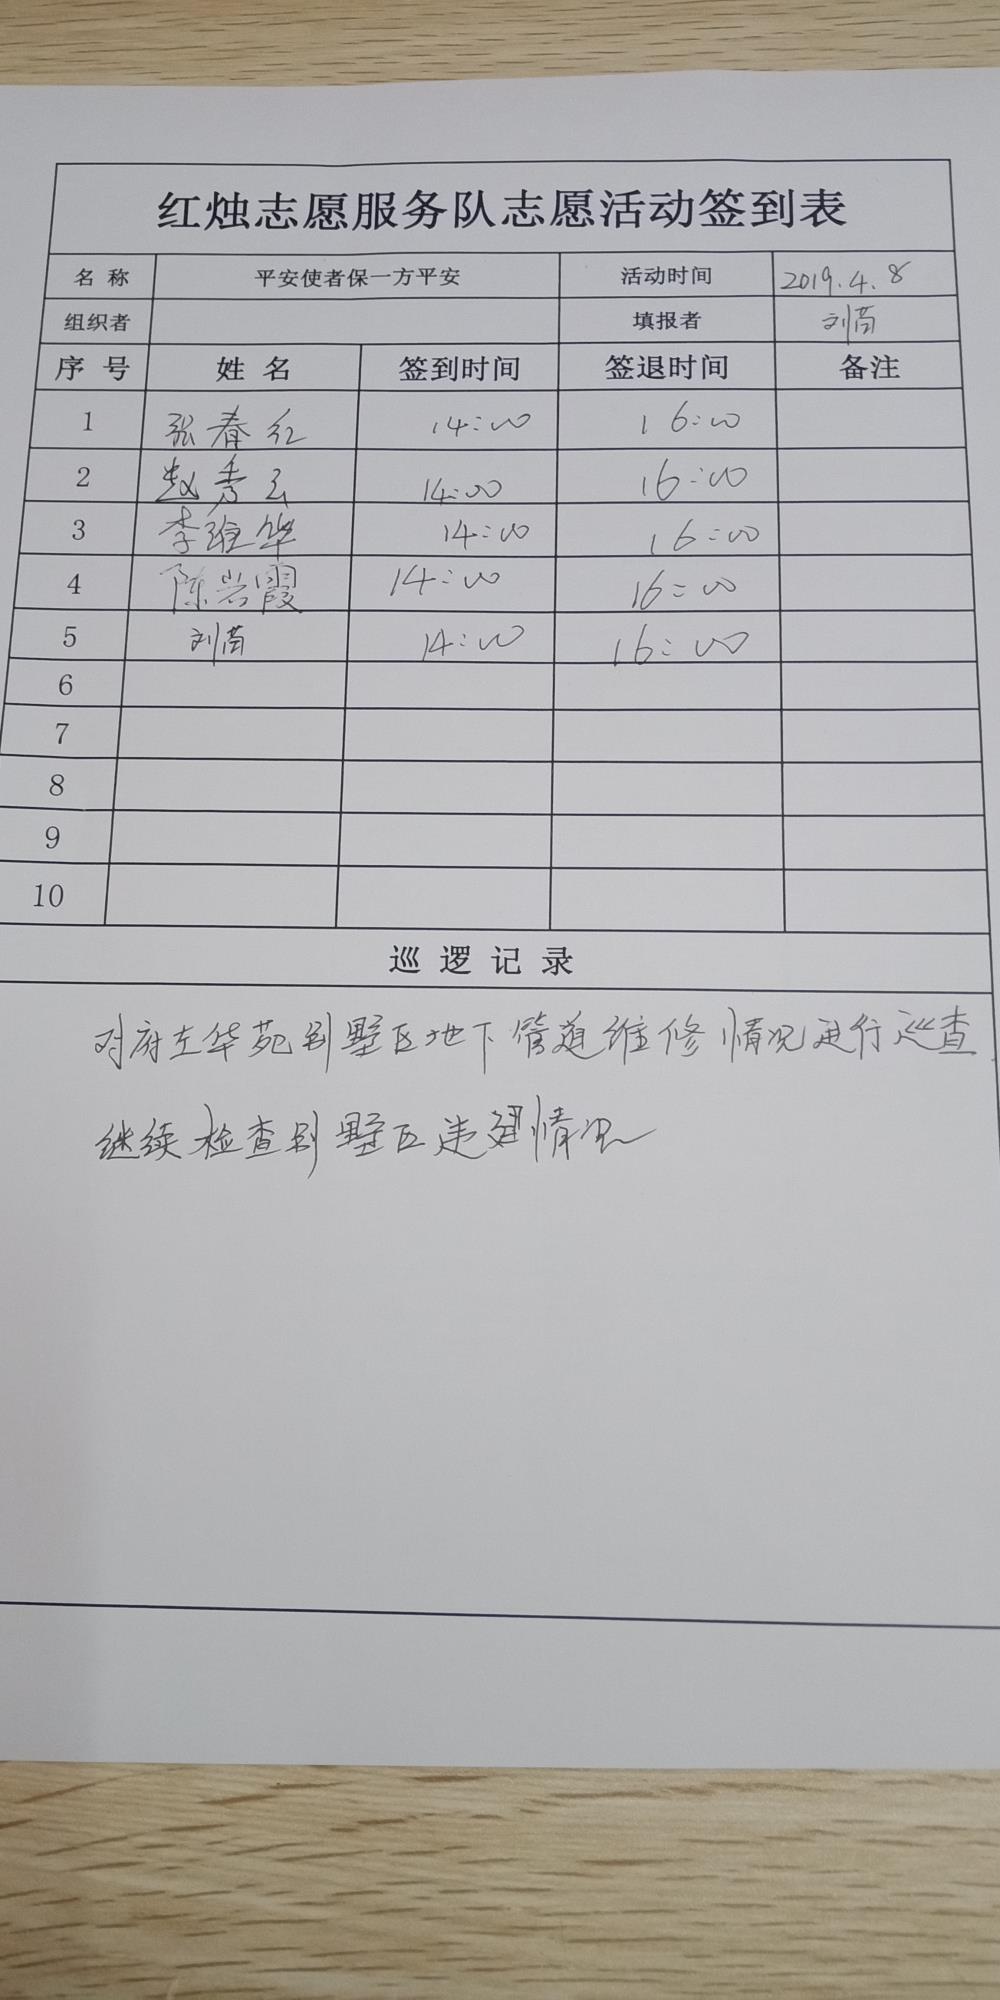 红烛志愿服务队志愿活动签到表
名 称 平安使者保一方平安 活动时间 2019.4.8
组织者 填报者 刘茵
序 号 姓 名 签到时间 签退时间 备注
1 张春红 14:00 16:00
2 赵秀云 14:00 16:00
3 李维华 14:00 16:00
4 陈兴霞 14:00 16:00
5 刘茵 14:00 16:00
6
7
8
9
10
巡 逻 记 录
对府左华苑别墅区地下管道维修情况进行巡查
继续检查别墅区违建情况